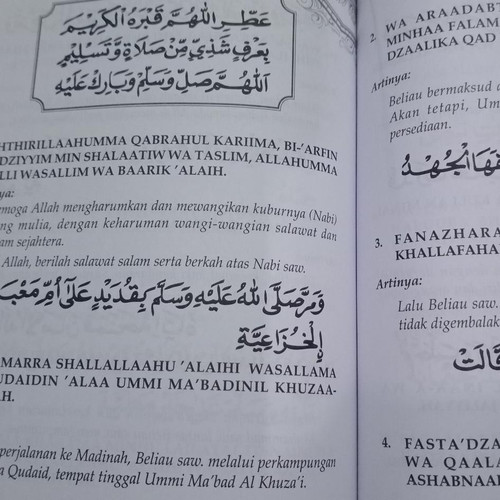 عَطِّرِ اللهُمَّ قَبْرَهُ الْكَرِيمَ
بِعَرْفٍ شَذِيٍّ مِّنْ صَلَاةٍ وَّتَسْلِيمٍ
اَللهُمَّ صَلِّ وَسَلِّمْ وَبَارِكْ عَلَيْهِ
HTHIRILLAAHUMMA QABRAHUL KARIIMA, BI-'ARFIN
DZIYYIM MIN SHALAATIW WA TASLIM, ALLAHUMMA
LLI WASALLIM WA BAARIK 'ALAIH.
ya:
moga Allah mengharumkan dan mewangikan kuburnya (Nabi)
ng mulia, dengan keharuman wangi-wangian salawat dan
am sejahtera.
Allah, berilah salawat salam serta berkah atas Nabi saw.
وَمَرَّ صَلَّى اللهُ عَلَيْهِ وَسَلَّمَ بِقُدَيْدٍ عَلَى أُمِّ مَعْبَدٍ
الْخُزَاعِيَّةِ
MARRA SHALLALLAAHU 'ALAIHI WASALLAMA
UDAIDIN 'ALAA UMMI MA'BADINIL KHUZAA-
AH.
perjalanan ke Madinah, Beliau saw. melalui perkampungan
a Qudaid, tempat tinggal Ummi Ma'bad Al Khuza'i.
2. WA ARAADABT
MINHAA FALAM
DZAALIKA QAD
Artinya:
Beliau bermaksud
Akan tetapi, Um
persediaan.
3. FANAZHARA
KHALLAFAHA
Artinya:
Lalu Beliau saw.
tidak digembalak
قَالَتْ
4. FASTA'DZA
WA QAALA
ASHABNAA